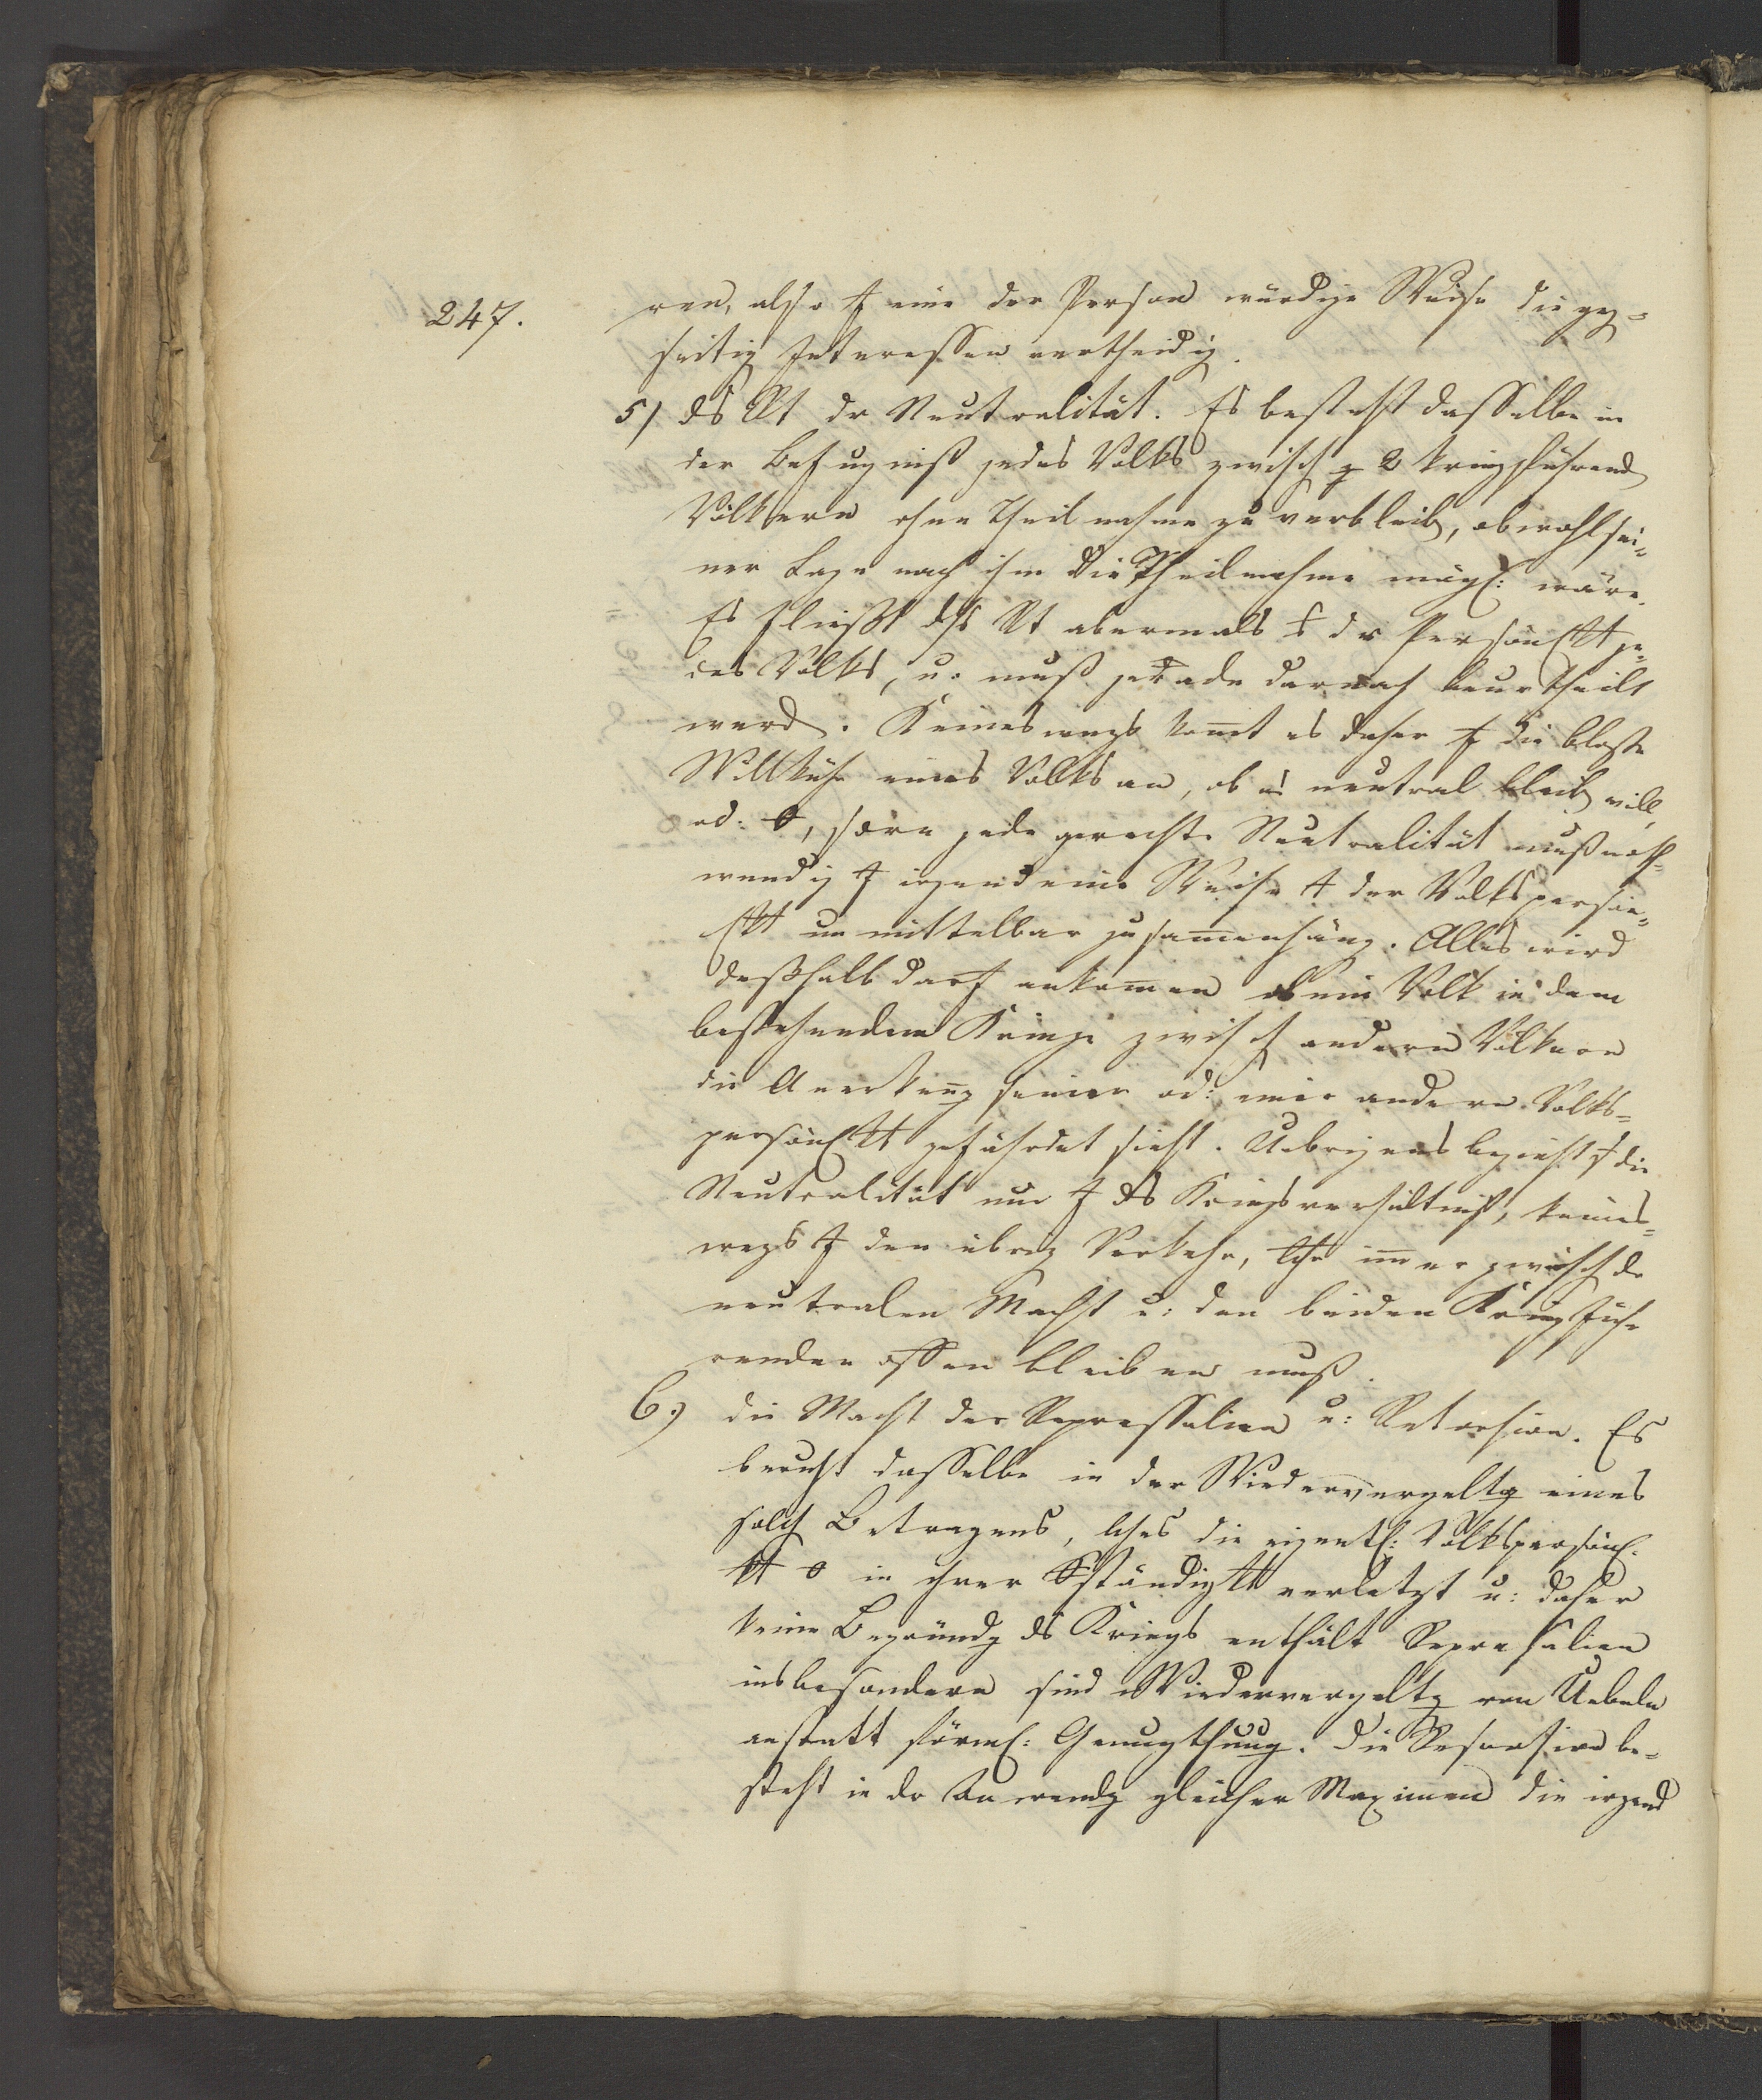 247.
ren, also f eine der Person würdige Weise die geg=
seitig Interessen vertheidig.
5) ds Rt dr Neutralität. Es besteht dasselbe in
der Befugniß jedes Volks zwisch 2 kriegführend
Völkern ohne Theilnahme zu verbleib, obwohl sei=
ner Lage nach ihm die Theilnahme mögl: wäre.
Es fließt dss Rt abermals dr Persönlkt je=
des Volks, u: muß gerade darnach beurtheilt
werd. Keineswegs komt es daher f die bloße
Willkühr eines Volks an, ob es neutral bleib will,
od: 0, sondern jede gerechte Neutralität muß noth=
wendig f irgend eine Weise + der Volkspersön=
lkt unmittelbar zusamenhäng. Alles wird
deßhalb darf ankomen ob ein Volk in dem
bestehenden Kriege zwisch andern Völkern
die Anerkeng seiner od: einer andern Volks=
persönlkt gefährdet sieht. Uebrigens bezieht s die
Neutralität nur f ds Kriegsverhältniß, keines=
wegs f den übrig Verkehr, lche imer zwisch dr
neutralen Macht u: den beiden Krieg füh
renden offen bleiben muß.
6.) die Macht der Repressalien u: Retorsion. Es
beruht dasselbe in der Wiedervergeltg eines
solch Betragens, lches die eigentl: Volkspersönl.
kt 0 in ihrer Sständigkt verletzt u: daher
keine Begründg ds Kriegs enthält Represalien
insbesondere sind Wiedervergeltg von Uebeln
anstatt förml: Genugthuung. Die Retorsion be=
steht in dr Anwendg gleicher Maximen die irgend